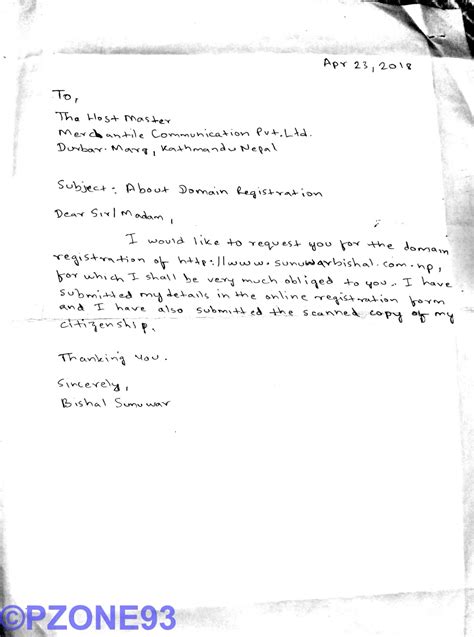 Apr 23, 2018
To,
The Host Master
Merchantile Communication Pvt.Ltd.
Durbar Marg, Kathmandu Nepal
Subject: About Domain Registration
Dear Sir/Madam,
I would like to request you for the domain
registration of http://www.sunuwarbishal.com.np,
for which I shall be very much obliged to you. I have
submitted my details in the online registration form
and I have also submitted the scanned copy of my
citizenship.
Thanking you.
Sincerely,
Bishal Sunuwar
©PZONE93